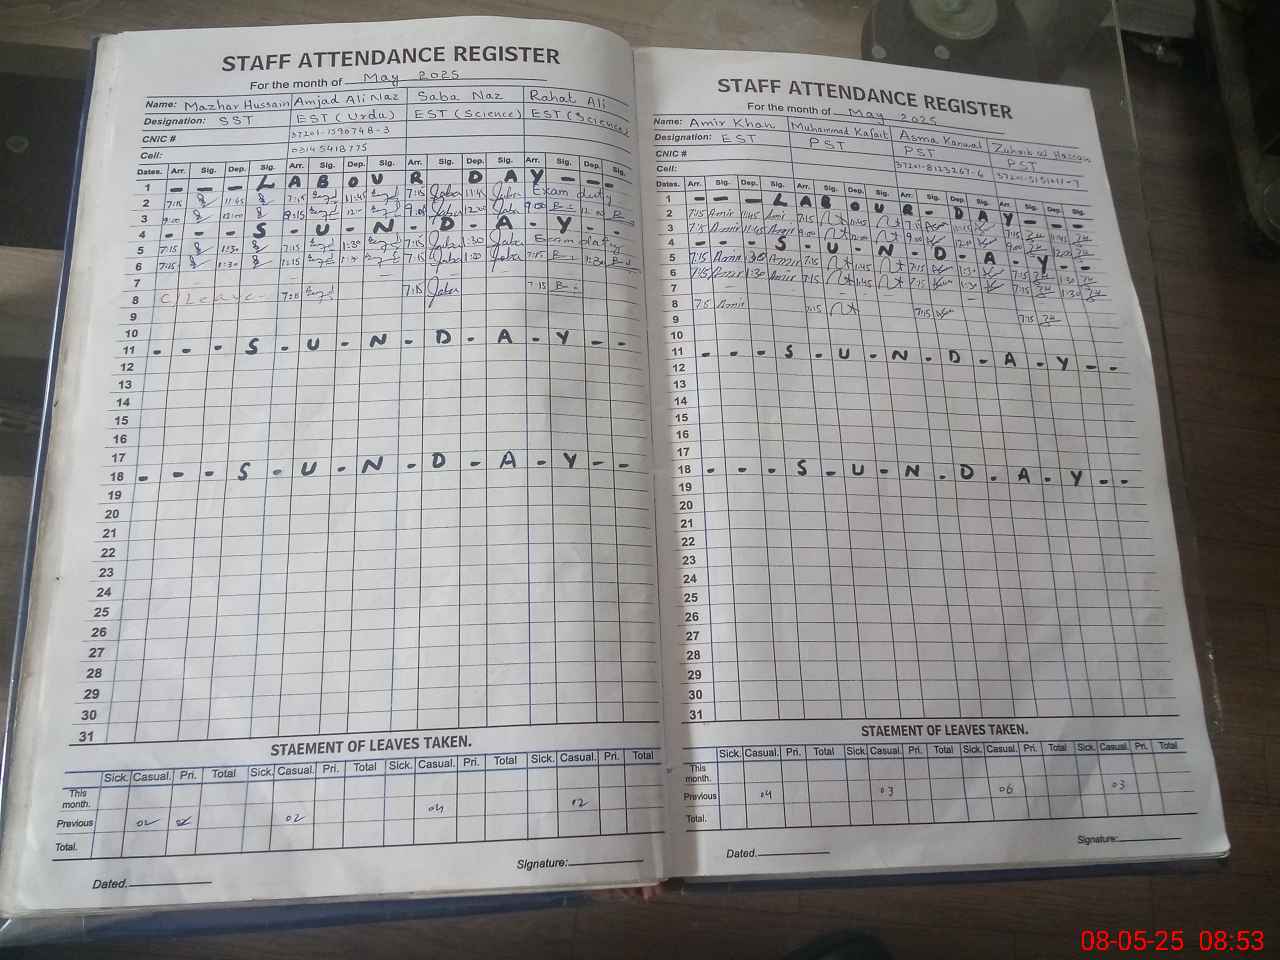 STAFF ATTENDANCE REGISTER
For the month of May 2025
Name: Mazhar Hussain Amjad Ali Naz Saba Naz Rahat Ali
Designation: SST EST (Urdu) EST (Science) EST (Science)
CNIC #
Cell: 03145418775
Dates. Arr. Sig. Dep. Sig. Arr. Sig. Dep. Sig. Arr. Sig. Dep. Sig. Arr. Sig. Dep. Sig.
1 - - - L A B O U R D A Y - - -
2 7:15 11:45 7:15 11:45 7:15 11:45 Exam duty
3 9:00 12:00 9:15 9:00 12:00 9:00 12:00
4 - - - S - U - N - D - A - Y - - -
5 7:15 1:30 7:15 1:30 7:15 1:30 Exam duty
6 7:15 1:30 7:15 7:15 1:30 7:15 1:30
7
8 C Leave 7:15 7:15
9
10
11 - - - S - U - N - D - A - Y - -
12
13
14
15
16
17
18 - - - S - U - N - D - A - Y - -
19
20
21
22
23
24
25
26
27
28
29
30
31
STAEMENT OF LEAVES TAKEN.
Sick. Casual. Pri. Total Sick. Casual. Pri. Total Sick. Casual. Pri. Total Sick. Casual. Pri. Total
This month.
Previous 02 02 04 02
Total.
Dated. Signature:
STAFF ATTENDANCE REGISTER
For the month of May 2025
Name: Amir Khan Muhammad Kafait Asma Kanwal
Designation: EST PST PST PST
CNIC # 37201-8123267-6
Cell:
Dates. Arr. Sig. Dep. Sig. Arr. Sig. Dep. Sig. Arr. Sig. Dep. Sig. Arr. Sig. Dep. Sig.
1 - - - L A B O U R - D A Y - - -
2 7:15 Amir 11:45 Amir 7:15 11:45 7:15 11:45 7:15 11:45
3 7:15 Amir 11:45 Amir 9:00 12:00 9:00 12:00 9:00 12:00
4 - - - S - U - N - D - A - Y - -
5 7:15 Amir 1:30 Amir 7:15 1:45 7:15 1:30 7:15 1:30
6 7:15 Amir 1:30 Amir 7:15 1:45 7:15 1:30 7:15 1:30
7
8 7:15 Amir 7:15 7:15 7:15
9
10
11 - - - S - U - N - D - A - Y - -
12
13
14
15
16
17
18 - - - S - U - N - D - A - Y - -
19
20
21
22
23
24
25
26
27
28
29
30
31
STAEMENT OF LEAVES TAKEN.
Sick. Casual. Pri. Total Sick. Casual. Pri. Total Sick. Casual. Pri. Total Sick. Casual. Pri. Total
This month.
Previous 04 03 06 03
Total.
Dated. Signature:
08-05-25 08:53